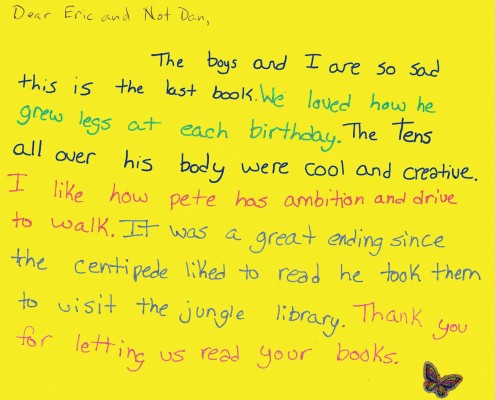 Dear Eric and Not Dan,
The boys and I are so sad
this is the last book. We loved how he
grew legs at each birthday. The Tens
all over his body were cool and creative.
I like how pete has ambition and drive
to walk. It was a great ending since
the centipede liked to read he took them
to visit the jungle library. Thank you
for letting us read your books.